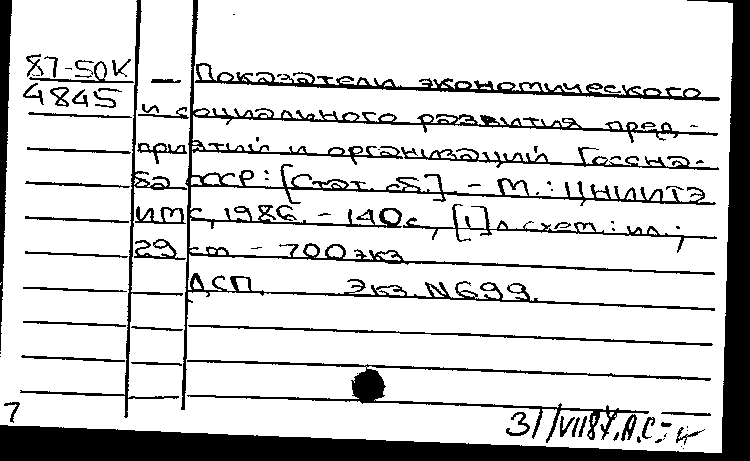 87-50К — Показатели экономического
4845 и социального развития пред-
приятий и организаций Госсна-
ба СССР: [Стат. сб.]. - М.: ЦНИИТЭ
ИМС, 1986. - 140с, [1] л схем.: ил.;
29 см - 700 экз
ДСП. Экз. N699.
7 31/VII87.